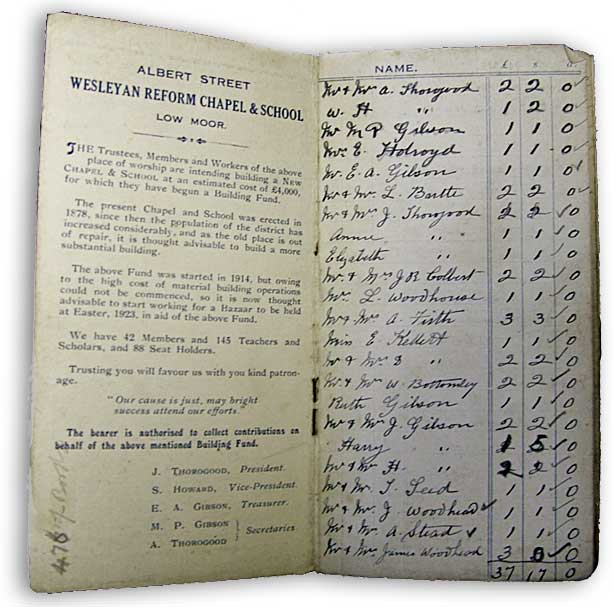 ALBERT STREET
WESLEYAN REFORM CHAPEL & SCHOOL
LOW MOOR.
THE Trustees, Members and Workers of the above
place of worship are intending building a NEW
CHAPEL & SCHOOL at an estimated cost of £4,000,
for which they have begun a Building Fund.
The present Chapel and School was erected in
1878, since then the population of the district has
increased considerably, and as the old place is out
of repair, it is thought advisable to build a more
substantial building.
The above Fund was started in 1914, but owing
to the high cost of material building operations
could not be commenced, so it is now thought
advisable to start working for a Bazaar to be held
at Easter, 1923, in aid of the above Fund.
We have 42 Members and 145 Teachers and
Scholars, and 88 Seat Holders.
Trusting you will favour us with you kind patron-
age.
"Our cause is just, may bright
success attend our efforts."
The bearer is authorised to collect contributions on
behalf of the above mentioned Building Fund.
J. THOROGOOD, President.
S. HOWARD, Vice-President.
E. A. GIBSON, Treasurer.
M. P. GIBSON } Secretaries
A. THOROGOOD
NAME. £ s d.
Mr & Mrs A. Thorogood 2 2 0
W. H " 1 2 0
Mr M P Gibson 1 1 0
Mrs E. Holroyd 1 1 0
Mr. E. A. Gibson 1 1 0
Mr & Mrs L. 2 2 0
Mr & Mrs J. Thorogood 2 2 0
Annie " 1 1 0
Elizabeth " 1 1 0
Mr. & Mrs J R Colbert 2 2 0
Mrs. L. Woodhouse 1 1 0
Mr & Mrs A. Firth 3 3 0
Miss E. Kellett 1 1 0
Mr & Mrs " 2 2 0
Mr & Mrs W. Bottomley 2 2 0
Ruth Gibson 1 1 0
Mr & Mrs J. Gibson 2 2 0
Harry " 1 5 0
Mr & Mrs H. " 2 2 0
Mr & Mrs T. Leed 1 1 0
Mr & Mrs. J. Woodhead 1 1 0
Mr & Mrs A Stead 1 1 0
Mr & Mrs James Woodhead 3 0
37 17 0